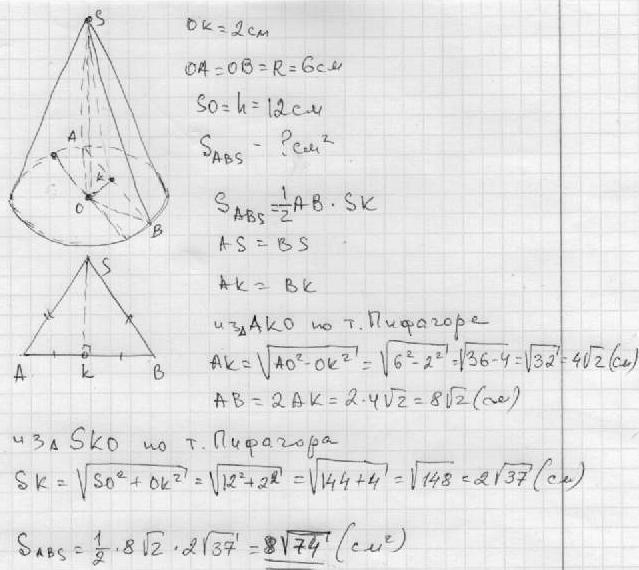 S
A
K
O
B
S
A
K
B
OK = 2см
OA = OB = R = 6см
SO = h = 12см
S_ABS - ? см²
S_ABS = 1/2 AB · SK
AS = BS
AK = BK
из △ AKO по т. Пифагора
AK = √(AO² - OK²) = √(6² - 2²) = √(36 - 4) = √32 = 4√2 (см)
AB = 2AK = 2·4√2 = 8√2 (см)
из △ SKO по т. Пифагора
SK = √(SO² + OK²) = √(12² + 2²) = √(144 + 4) = √148 = 2√37 (см)
S_ABS = 1/2 · 8√2 · 2√37 = 8√74 (см²)